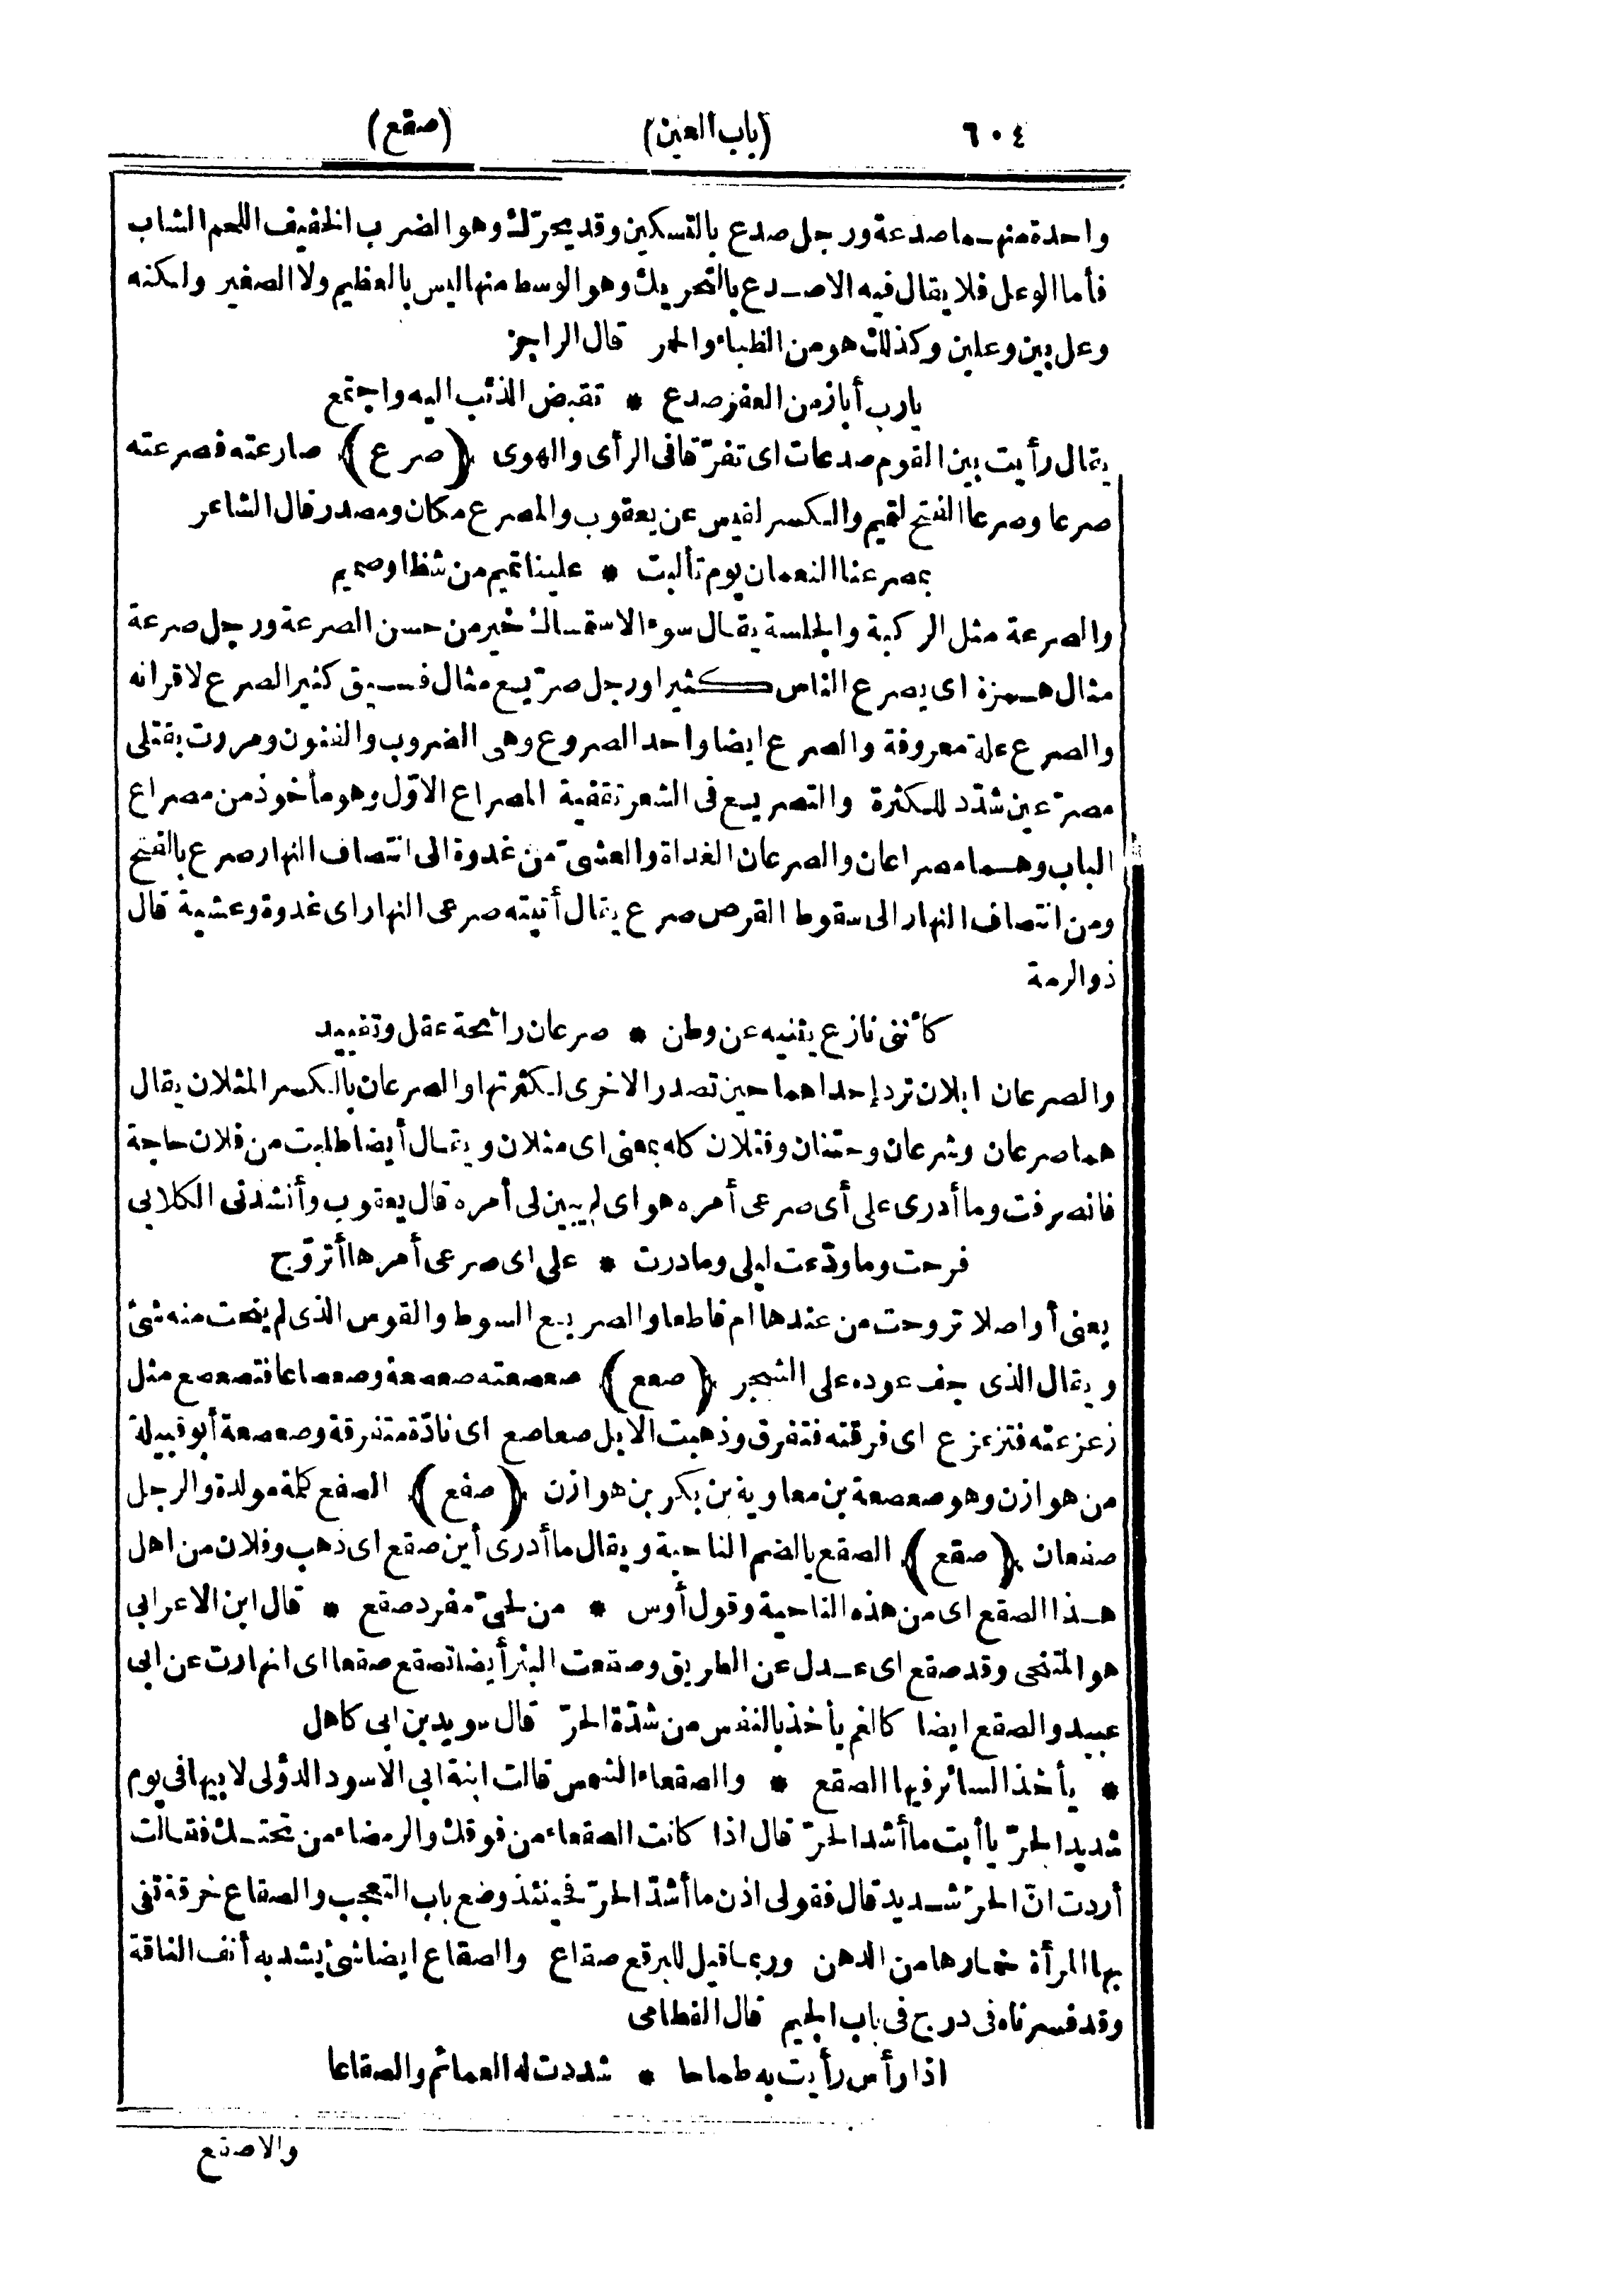 ٦٠٤ (باب العين) (صقع)
واحدة منهما صدعة ورجل صدع بالتسكين وقد يحرّك وهو الضرب الخفيف اللحم الشاب
فأما الوعل فلا يقال فيه الا صدع بالتحريك وهو الوسط منها ليس بالعظيم ولا الصغير ولكنه
وعل بين وعلين وكذلك هو من الظباء والحمر قال الراجز
يارب أباز من العفر صدع * تقبض الذئب اليه واجتمع
يقال رأيت بين القوم صدعات اى تفرّقا فى الرأى والهوى ﴿صرع﴾ صارعته فصرعته
صرعا وصرعا الفتح لتميم والكسر لقيس عن يعقوب والمصرع مكان ومصدر قال الشاعر
بمصرعنا النعمان يوم تألبت * علينا تميم من شظا وصميم
والصرعة مثل الركبة والجلسة يقال سوء الاستمساك خير من حسن الصرعة ورجل صرعة
مثال همزة اى يصرع الناس كثيرا ورجل صرّيع مثال فسيق كثير الصرع لاقرانه
والصرع علة معروفة والصرع ايضا واحد الصروع وهى الضروب والفنون ومررت بقتلى
مصرّعين شدّد للكثرة والتصريع فى الشعر تقفية المصراع الاوّل وهو مأخوذ من مصراع
الباب وهما مصراعان والصرعان الغداة والعشىّ من غدوة الى انتصاف النهار صرع بالفتح
ومن انتصاف النهار الى سقوط القرص صرع يقال أتيته صرعى النهار اى غدوة وعشية قال
ذو الرمة
كأننى نازع يثنيه عن وطن * صرعان رائحة عقل وتقييد
والصرعان ابلان ترد إحداهما حين تصدر الاخرى لكثرتها والصرعان بالكسر المثلان يقال
هما صرعان وشرعان وحتنان وقتلان كله بمعنى اى مثلان ويقال أيضا طلبت من فلان حاجة
فانصرفت وما أدرى على أى صرعى أمره هو اى لم يبين لى أمره قال يعقوب وأنشدنى الكلابى
فرحت وما ودّعت ليلى وما درت * على اى صرعى أمرها أتروّح
يعنى أواصلا تروحت من عندها ام قاطعا والصريع السوط والقوس الذى لم ينحت منه شئ
ويقال الذى جف عوده على الشجر ﴿صعع﴾ صعصعته صعصعة وصعصاعا فتصعصع مثل
زعزعته فتزعزع اى فرقته فتفرق وذهبت الابل صعاصع اى نادّة متفرقة وصعصعة أبو قبيلة
من هوازن وهو صعصعة بن معاوية بن بكر بن هوازن ﴿صفع﴾ الصفع كلمة مولدة والرجل
صفعان ﴿صقع﴾ الصقع بالضم الناحية ويقال ما أدرى أين صقع اى ذهب وفلان من اهل
هذا الصقع اى من هذه الناحية وقول أوس * من لحىّ مفرد صقع * قال ابن الاعرابى
هو المتنحى وقد صقع اى عدل عن الطريق وصقعت البئر أيضا تصقع صقعا اى انهارت عن ابى
عبيد والصقع ايضا كالغم يأخذ بالنفس من شدّة الحرّ قال سويد بن ابى كاهل
* يأخذ السائر فيها الصقع * والصقعاء الشمس قالت ابنة ابى الاسود الدؤلى لابيها فى يوم
شديد الحرّ يا أبت ما أشد الحرّ قال اذا كانت الصقعاء من فوقك والرمضاء من تحتك فقالت
أردت انّ الحرّ شديد قال فقولى اذن ما أشدّ الحرّ فحينئذ وضع باب التعجب والصقاع خرقة تقى
بها المرأة خمارها من الدهن وربما قيل للبرقع صقاع والصقاع ايضا شئ يشد به أنف الناقة
وقد فسرناه فى درج فى باب الجيم قال القطامى
اذا رأس رأيت به طماحا * شددت له العمائم والصقاعا
والاصقع